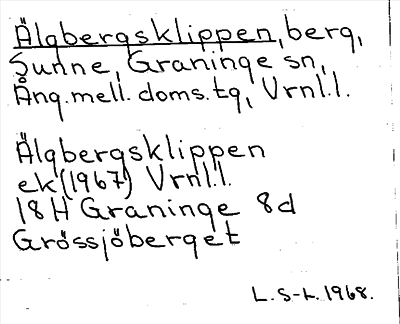 Älgbergsklippen, berg,
Sunne, Graninge sn,
Ång.mell. doms.tg, Vrnl.l.
Älgbergsklippen
ek (1967) Vrnl.l.
18H Graninge 8d
Grössjöberget
L. S-L. 1968.